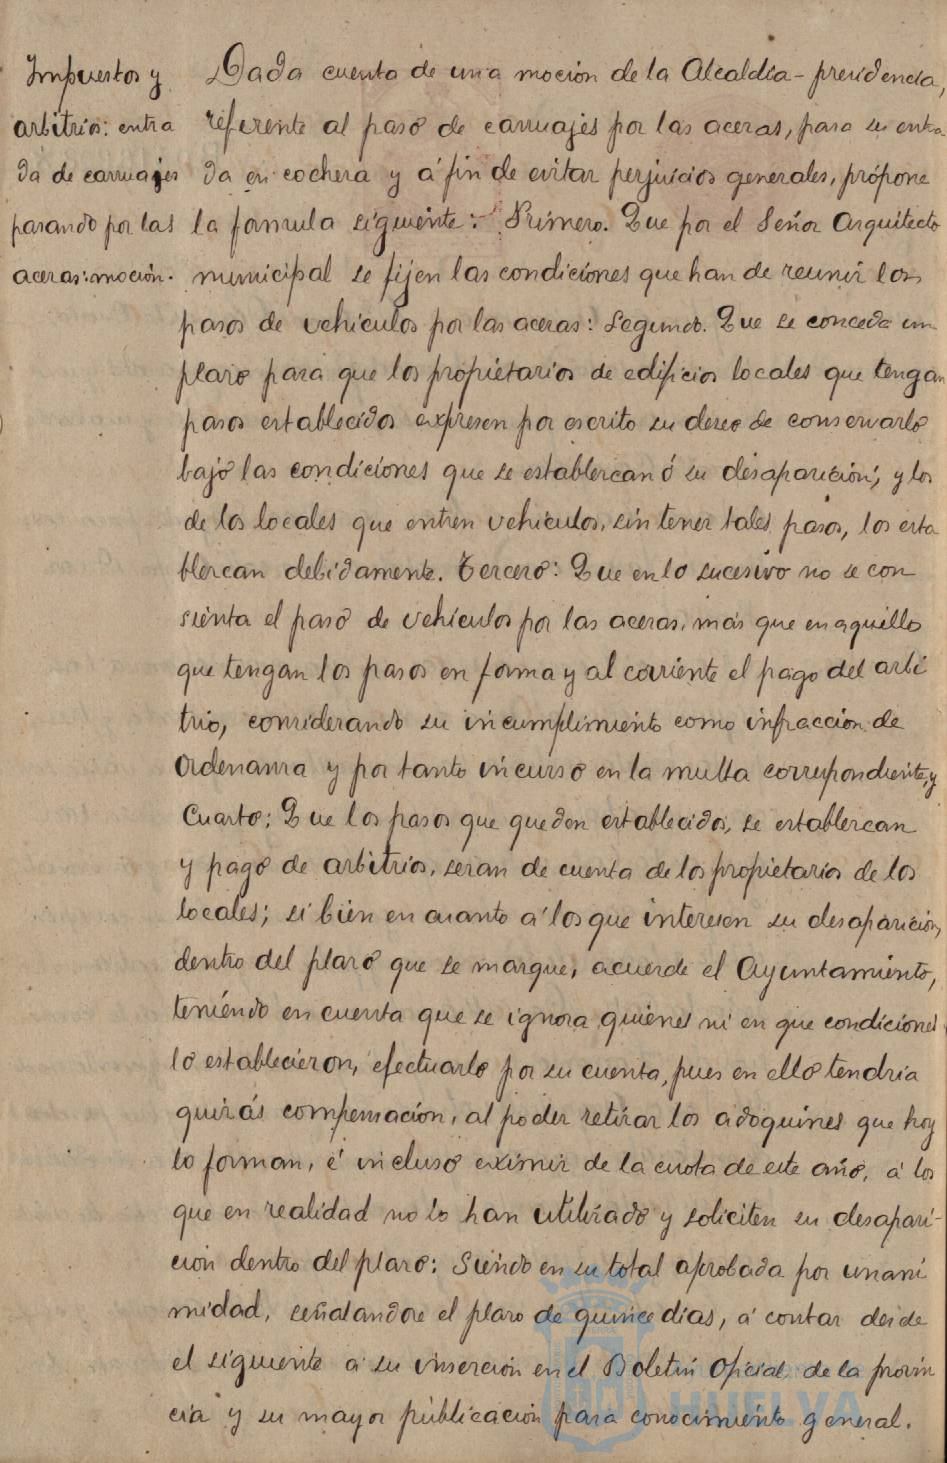 Impuestos y
arbitrios: entra
da de carruajes
pasando por las
aceras: moción.
Dada cuenta de una moción de la Alcaldía-presidencia,
referente al paso de carruajes por las aceras, para su entra
da en cochera y á fin de evitar perjuicios generales, propone
la formula siguiente: Primero. Que por el Señor Arquitecto
municipal se fijen las condiciones que han de reunir los
pasos de vehiculos por las aceras: Segundo. Que se conceda un
plazo para que los propietarios de edificios locales que tengan
pasos establecidos expresen por escrito su deseo de conservarlo
bajo las condiciones que se establezcan ó su desaparición; y los
de los locales que entren vehiculos, sin tener tales pasos, los esta
blezcan debidamente. Tercero: Que en lo sucesivo no se con
sienta el paso de vehiculos por las aceras, más que en aquello
que tengan los pasos en forma y al corriente el pago del arbi
trio, considerando su incumplimiento como infracción de
Ordenanza y por tanto incurso en la multa correspondiente, y
Cuarto; Que los pasos que queden establecidos, se establezcan
y pago de arbitrios, seran de cuenta de los propietarios de los
locales; si bien en cuanto á los que interesen su desaparición,
dentro del plazo que se marque, acuerde el Ayuntamiento,
teniendo en cuenta que se ignora quienes ni en que condiciones
lo establecieron, efectuarlo por su cuenta, pues en ello tendria
quizás compensación, al poder retirar los adoquines que hoy
lo forman, é incluso eximir de la cuota de este año, á los
que en realidad no lo han utilizado y soliciten su desapari-
ción dentro del plazo: Siendo en su total aprobada por unani
midad, señalandose el plazo de quince dias, á contar desde
el siguiente á su inserción en el Boletin Oficial de la provin
cia y su mayor publicación para conocimiento general.
HUELVA